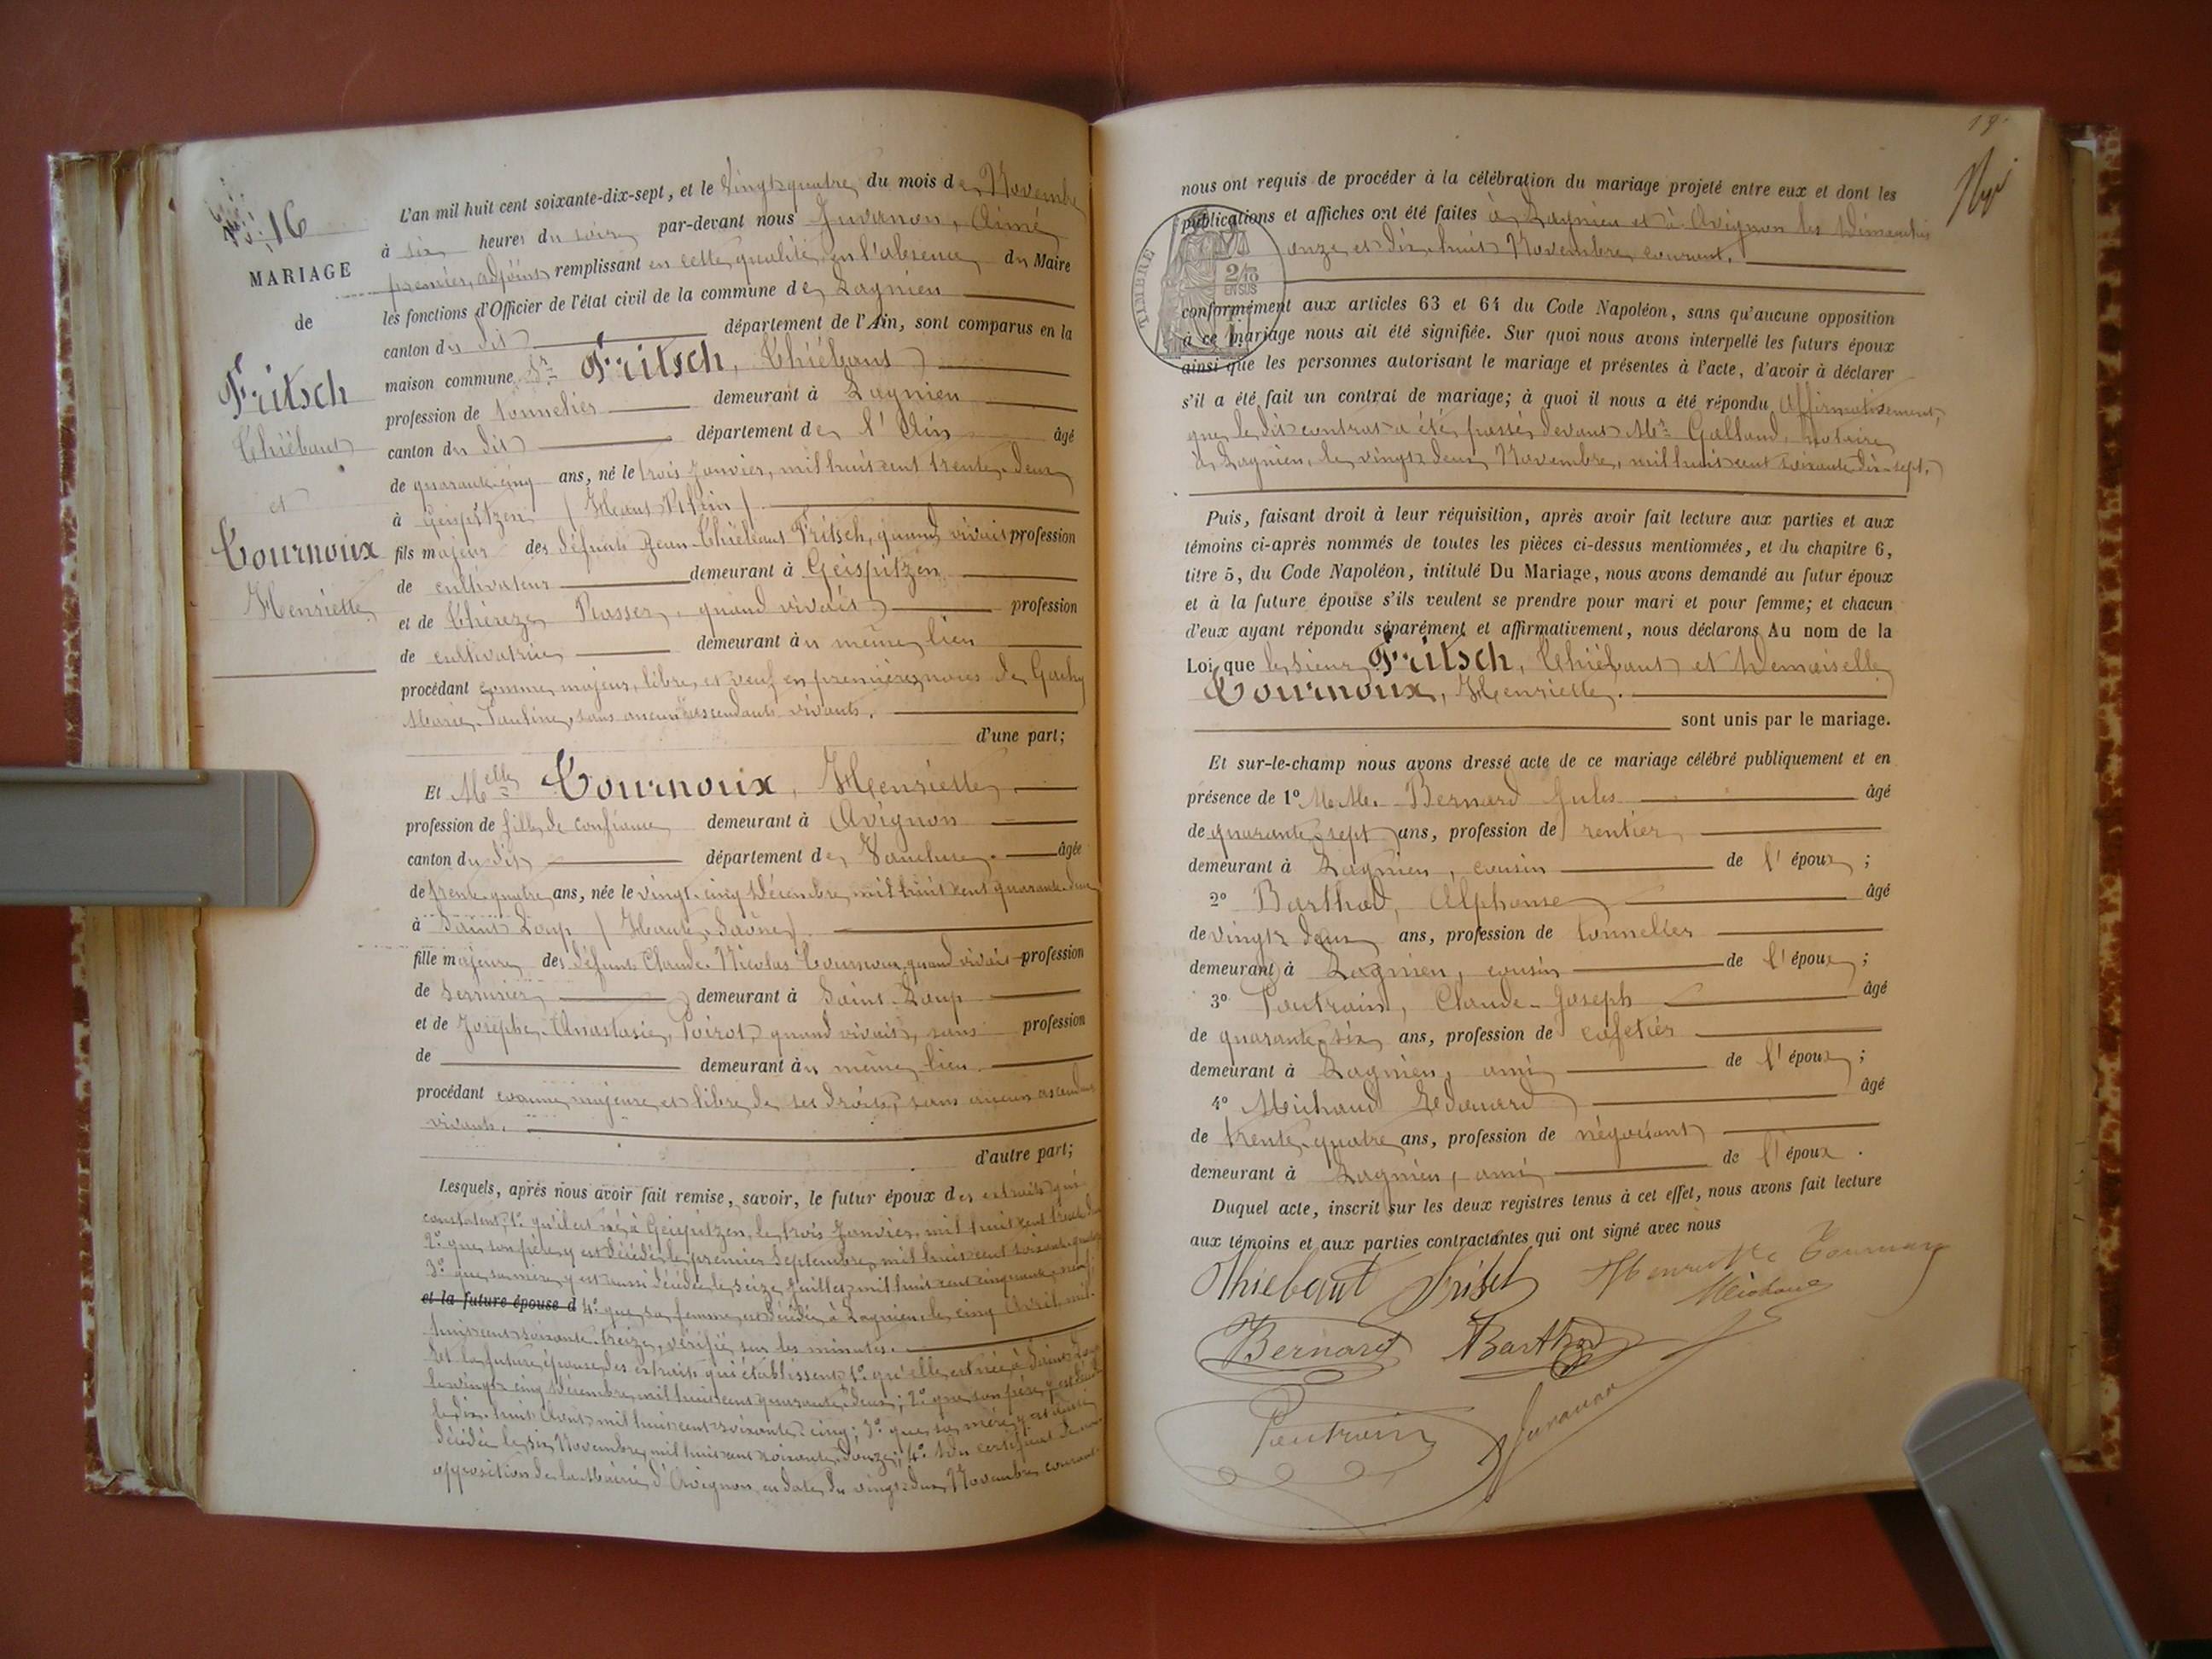 N° 16
MARIAGE
de
Fritsch
Thiébaut
et
Tournoux
Henriette
L'an mil huit cent soixante-dix-sept, et le vingt quatre du mois de Novembre
à six heures du soir par-devant nous Juvanon, Aimé
premier adjoint remplissant en cette qualité, en l'absence du Maire
les fonctions d'Officier de l'état civil de la commune de Lagnieu
canton du dit département de l'Ain, sont comparus en la
maison commune Sr Fritsch, Thiébaut
profession de tonnelier demeurant à Lagnieu
canton du dit département de l'Ain âgé
de quarante-cinq ans, né le trois Janvier, mil huit cent trente-deux
à Geispitzen (Haut Rhin)
fils majeur des défunts Jean Thiébaut Fritsch, quand vivait profession
de cultivateur demeurant à Geispitzen
et de Thérèze Rasser, quand vivait profession
de cultivatrice demeurant au même lieu
procédant comme majeur, libre, et veuf en premières noces de Gachy
Marie-Pauline, sans aucun ascendants vivants.
d'une part;
Et Melle Tournoux, Henriette
profession de fille de confiance demeurant à Avignon
canton du dit département de Vaucluse. âgée
de trente-quatre ans, née le vingt-cinq Décembre, mil huit cent quarante-deux
à Saint Loup (Haute Saône)
fille majeure des défunts Claude-Nicolas Tournoux, quand vivait profession
de serrurier demeurant à Saint-Loup
et de Josèphe-Anastasie Poirot, quand vivait, sans profession
de demeurant au même lieu
procédant comme majeure et libre de ses droits, sans aucun ascendants
vivants.
d'autre part;
Lesquels, après nous avoir fait remise, savoir, le futur époux des extraits qui
constatent, 1° qu'il est né à Geispitzen, le trois Janvier, mil huit cent trente deux
2° que son père y est décédé le premier Septembre, mil huit cent soixante quatre
3° que sa mère y est aussi décédée le seize Juillet mil huit cent cinquante neuf
et la future épouse d 4° que sa femme est décédée à Lagnieu, le cinq Avril mil
huit cent soixante-treize, vérifié sur les minutes.
Et la future épouse, des extraits qui établissent 1° qu'elle est née à Saint Loup
le vingt cinq Décembre, mil huit cent quarante-deux; 2° que son père y est décédé
le dix-huit Août mil huit cent soixante-cinq; 3° que sa mère y est aussi
décédée le six Novembre, mil huit cent soixante-douze; 4° Du certificat de non
opposition de la Mairie d'Avignon en date du vingt deux Novembre courant.
19
nous ont requis de procéder à la célébration du mariage projeté entre eux et dont les
publications et affiches ont été faites à Lagnieu et à Avignon les Dimanches
onze et dix-huit Novembre courant.
TIMBRE
2/10
EN SUS
conformément aux articles 63 et 64 du Code Napoléon, sans qu'aucune opposition
à ce mariage nous ait été signifiée. Sur quoi nous avons interpellé les futurs époux
ainsi que les personnes autorisant le mariage et présentes à l'acte, d'avoir à déclarer
s'il a été fait un contrat de mariage; à quoi il nous a été répondu affirmativement,
que le dit contrat a été passé devant Me Galland, notaire
à Lagnieu, le vingt deux Novembre, mil huit cent soixante dix-sept.
Puis, faisant droit à leur réquisition, après avoir fait lecture aux parties et aux
témoins ci-après nommés de toutes les pièces ci-dessus mentionnées, et du chapitre 6,
titre 5, du Code Napoléon, intitulé Du Mariage, nous avons demandé au futur époux
et à la future épouse s'ils veulent se prendre pour mari et pour femme; et chacun
d'eux ayant répondu séparément et affirmativement, nous déclarons Au nom de la
Loi, que le sieur Fritsch, Thiébaut et Demoiselle
Tournoux, Henriette.
sont unis par le mariage.
Et sur-le-champ nous avons dressé acte de ce mariage célébré publiquement et en
présence de 1° M.M. Bernard Jules âgé
de quarante-sept ans, profession de rentier
demeurant à Lagnieu, cousin de l'époux ;
2° Barthod, Alphonse âgé
de vingt deux ans, profession de tonnelier
demeurant à Lagnieu, cousin de l'époux ;
3° Pautrain, Claude-Joseph âgé
de quarante-six ans, profession de cafetier
demeurant à Lagnieu, ami de l'époux ;
4° Michaud Edouard âgé
de trente-quatre ans, profession de négociant
demeurant à Lagnieu, ami de l'époux .
Duquel acte, inscrit sur les deux registres tenus à cet effet, nous avons fait lecture
aux témoins et aux parties contractantes qui ont signé avec nous
Thiebaut Fritsch Henriette Tournoux
Michaud
Bernard Barthod
Pautrain Juvanon